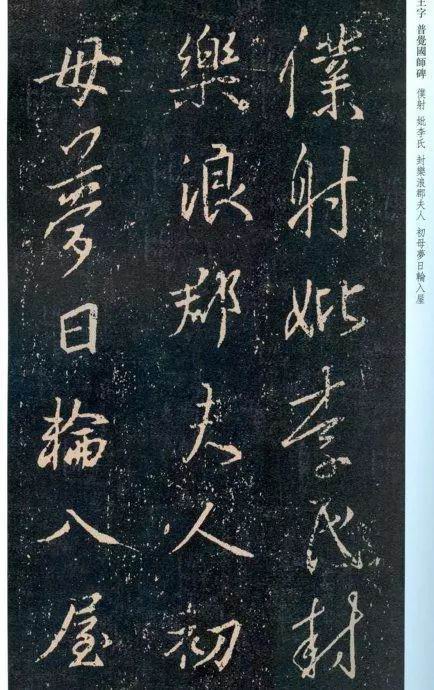 王字 普覺國師碑 僕射 妣李氏 封樂浪郡夫人 初母夢日輪入屋
僕射妣李氏封
樂浪郡夫人初
母夢日輪入屋